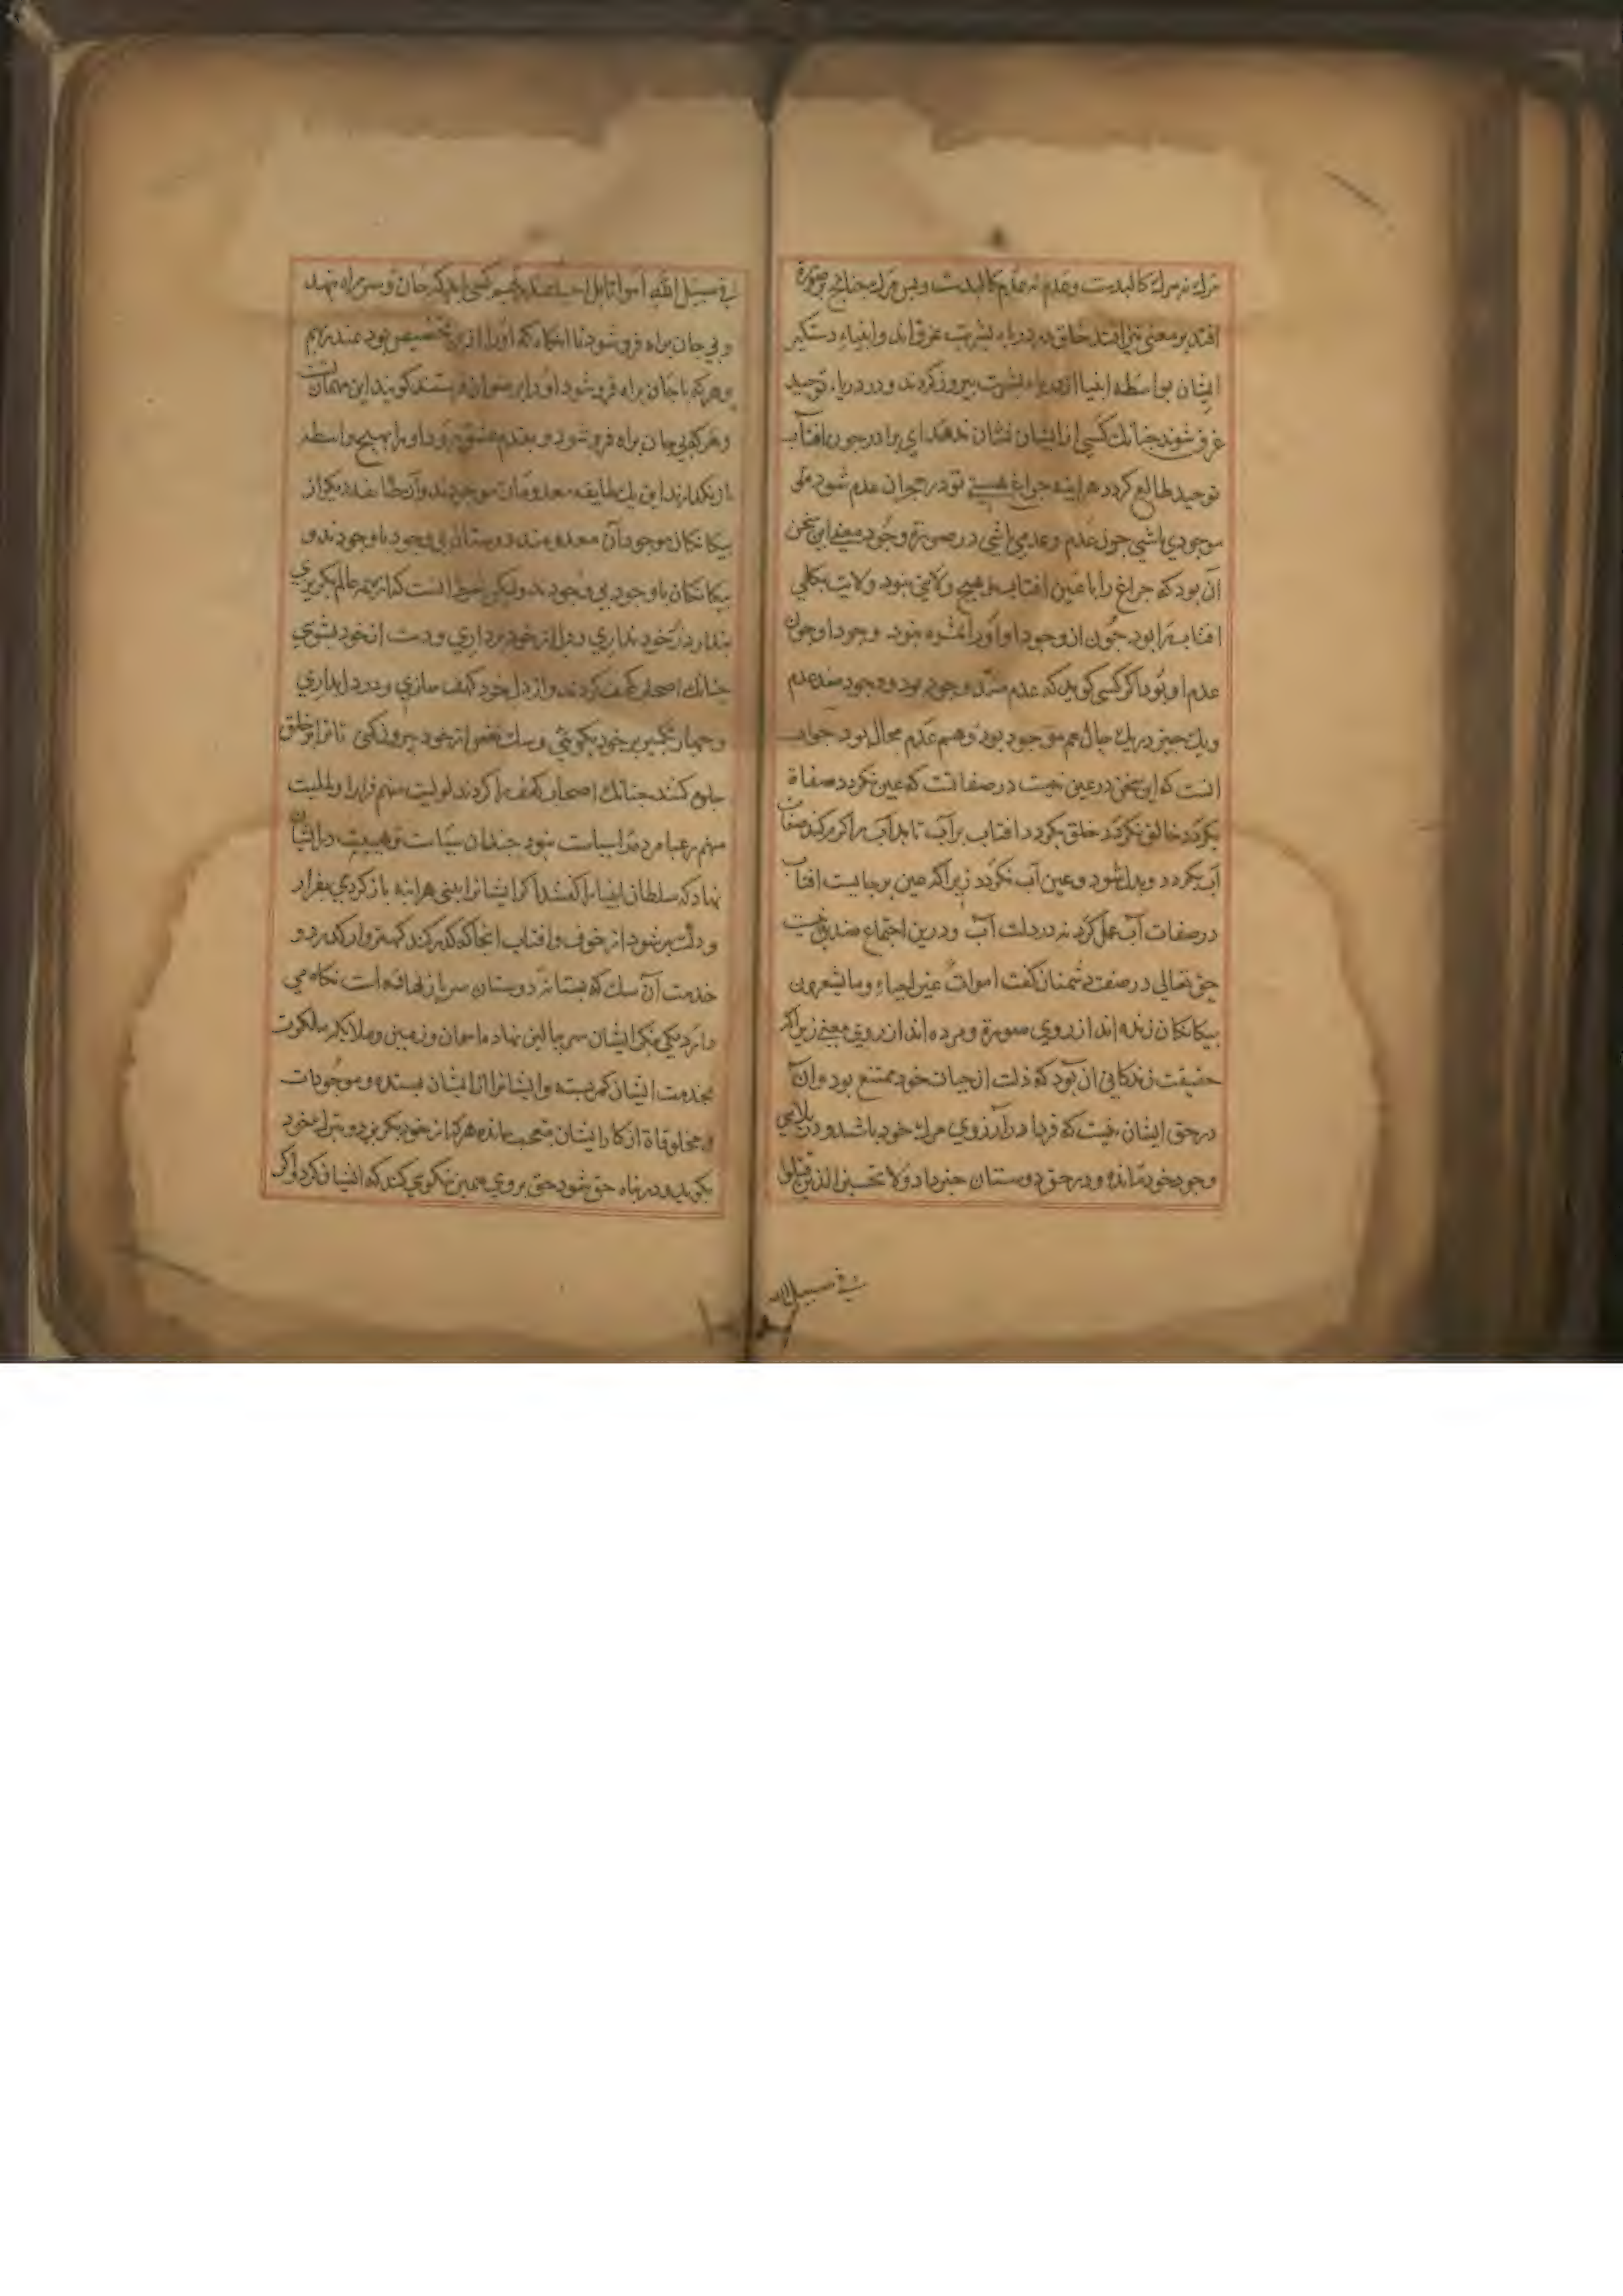 مرك نه مرك كالبدست وعدم نه عدم كالبدست وبس مرك جنانج بر صورة
افتد بر معنی نیز افتد خلق در دریاء بشریت غرق اند وانبیاء دستکیر
ایشان بواسطه انبیا از دریاء بشریت بیرون کردند و در دریاء توحید
غرق شوند جنانك کسی از ایشان نشان ندهد ای برادر جون افتاب
توحید طالع کردد هر اینه جراغ هستی تو در ان عدم شود ملی
موجودی باشی جون عدم وعدمی باشی در صورة وجود معنی این سخن
آن بود که جراغ را با عین افتاب هیج ولایتی نبود ولایت بکلی
افتاب را بود جون از وجود او اورا نبود وجود او جون
عدم او بود اکر کسی کوید که عدم ضد وجود بود و وجود ضد عدم
ویك جیز در یك حال هم موجود بود وهم عدم محال بود جواب
انست که این سخن در عین نیست در صفاتست که عین نکردد صفاة
بکردد خالق نکردد خلق بکردد افتاب بر آب تابد آب را کرم کند صفات
آب بکردد وبدل شود وعین آب نکردد زیرا که عین بر جایست افتاب
در صفات آب عمل کرد نه در ذات آب ودرین اجتماع ضدین نیست
حق تعالی در صفت دشمنان کفت اموات غیر احیاء وما یشعرون
بیکانکان زنده اند از روی صورة ومرده اند از روی معنی زیرا که
حقیقت زندکانی ان بود که ذلت از حیات خود ممتنع بود وان
در حق ایشان نیست که فردا در آرزوی مرك خود باشد و در بلای
وجود خود مانده و در حق دوستان خبر داد ولا تحسبن الذین قتلوا
فی سبیل الله
فی سبیل الله امواتا بل احیاء عند ربهم کسی که جان وسر براه نهد
وبی جان براه فرو شود تا انکاه که اورا از تخصیص بود عند ربهم
وهر که با جان براه فرو شود اورا برضوان فرستند کویند این مهمان تست
وهر که بی جان براه فرو شود وبقدم عشق برود اورا بهیج واسطه
باز نکذارند این یك طایفه معدومان موجودند وآن طایفه دیکر از
بیکانکان موجودان معدومند دوستان بی وجود با وجودند و
بیکانکان با وجود بی وجودند ولیکن شرط انست که از همه عالم بکریزی
در خود نداری ودل از خود برداری ودست از خود بشوی
جنانك اصحاب کهف کردند واز دل خود کهف سازی ودرد
وجهار تکبیر بر خود بکویی وسك نفس از خود بیرون کنی تا ترا بر خلق
جلوه کنند جنانك اصحاب کهف را کردند لولیت منهم فرارا ولملیت
منهم رعبا مرد نبود جندان سیاست وهیبت در ایشان
نهاد که سلطان انبیا را کفتند اکر ایشانرا بینی هر اینه باز کردی بفرار
ودلت بر شود از خوف وافتاب انجا که کذر کند کمتر وار کذرد و
خدمت آن سك که بر دوستان سر باز نهاده است نکاه می
دارد نیکی نکر ایشان سر ببالین نهاده واسمان وزمین وملایکه ملکوت
بخدمت ایشان کمر بسته وایشانرا از ایشان بستده وموجودات
ومخلوقاة از کار ایشان متعجب مانده هر که از خود بکریزد وبترك خود
بکوید ودر پناه حق شود حق بروی همین نیکوی کند که با ایشان کرد واکر